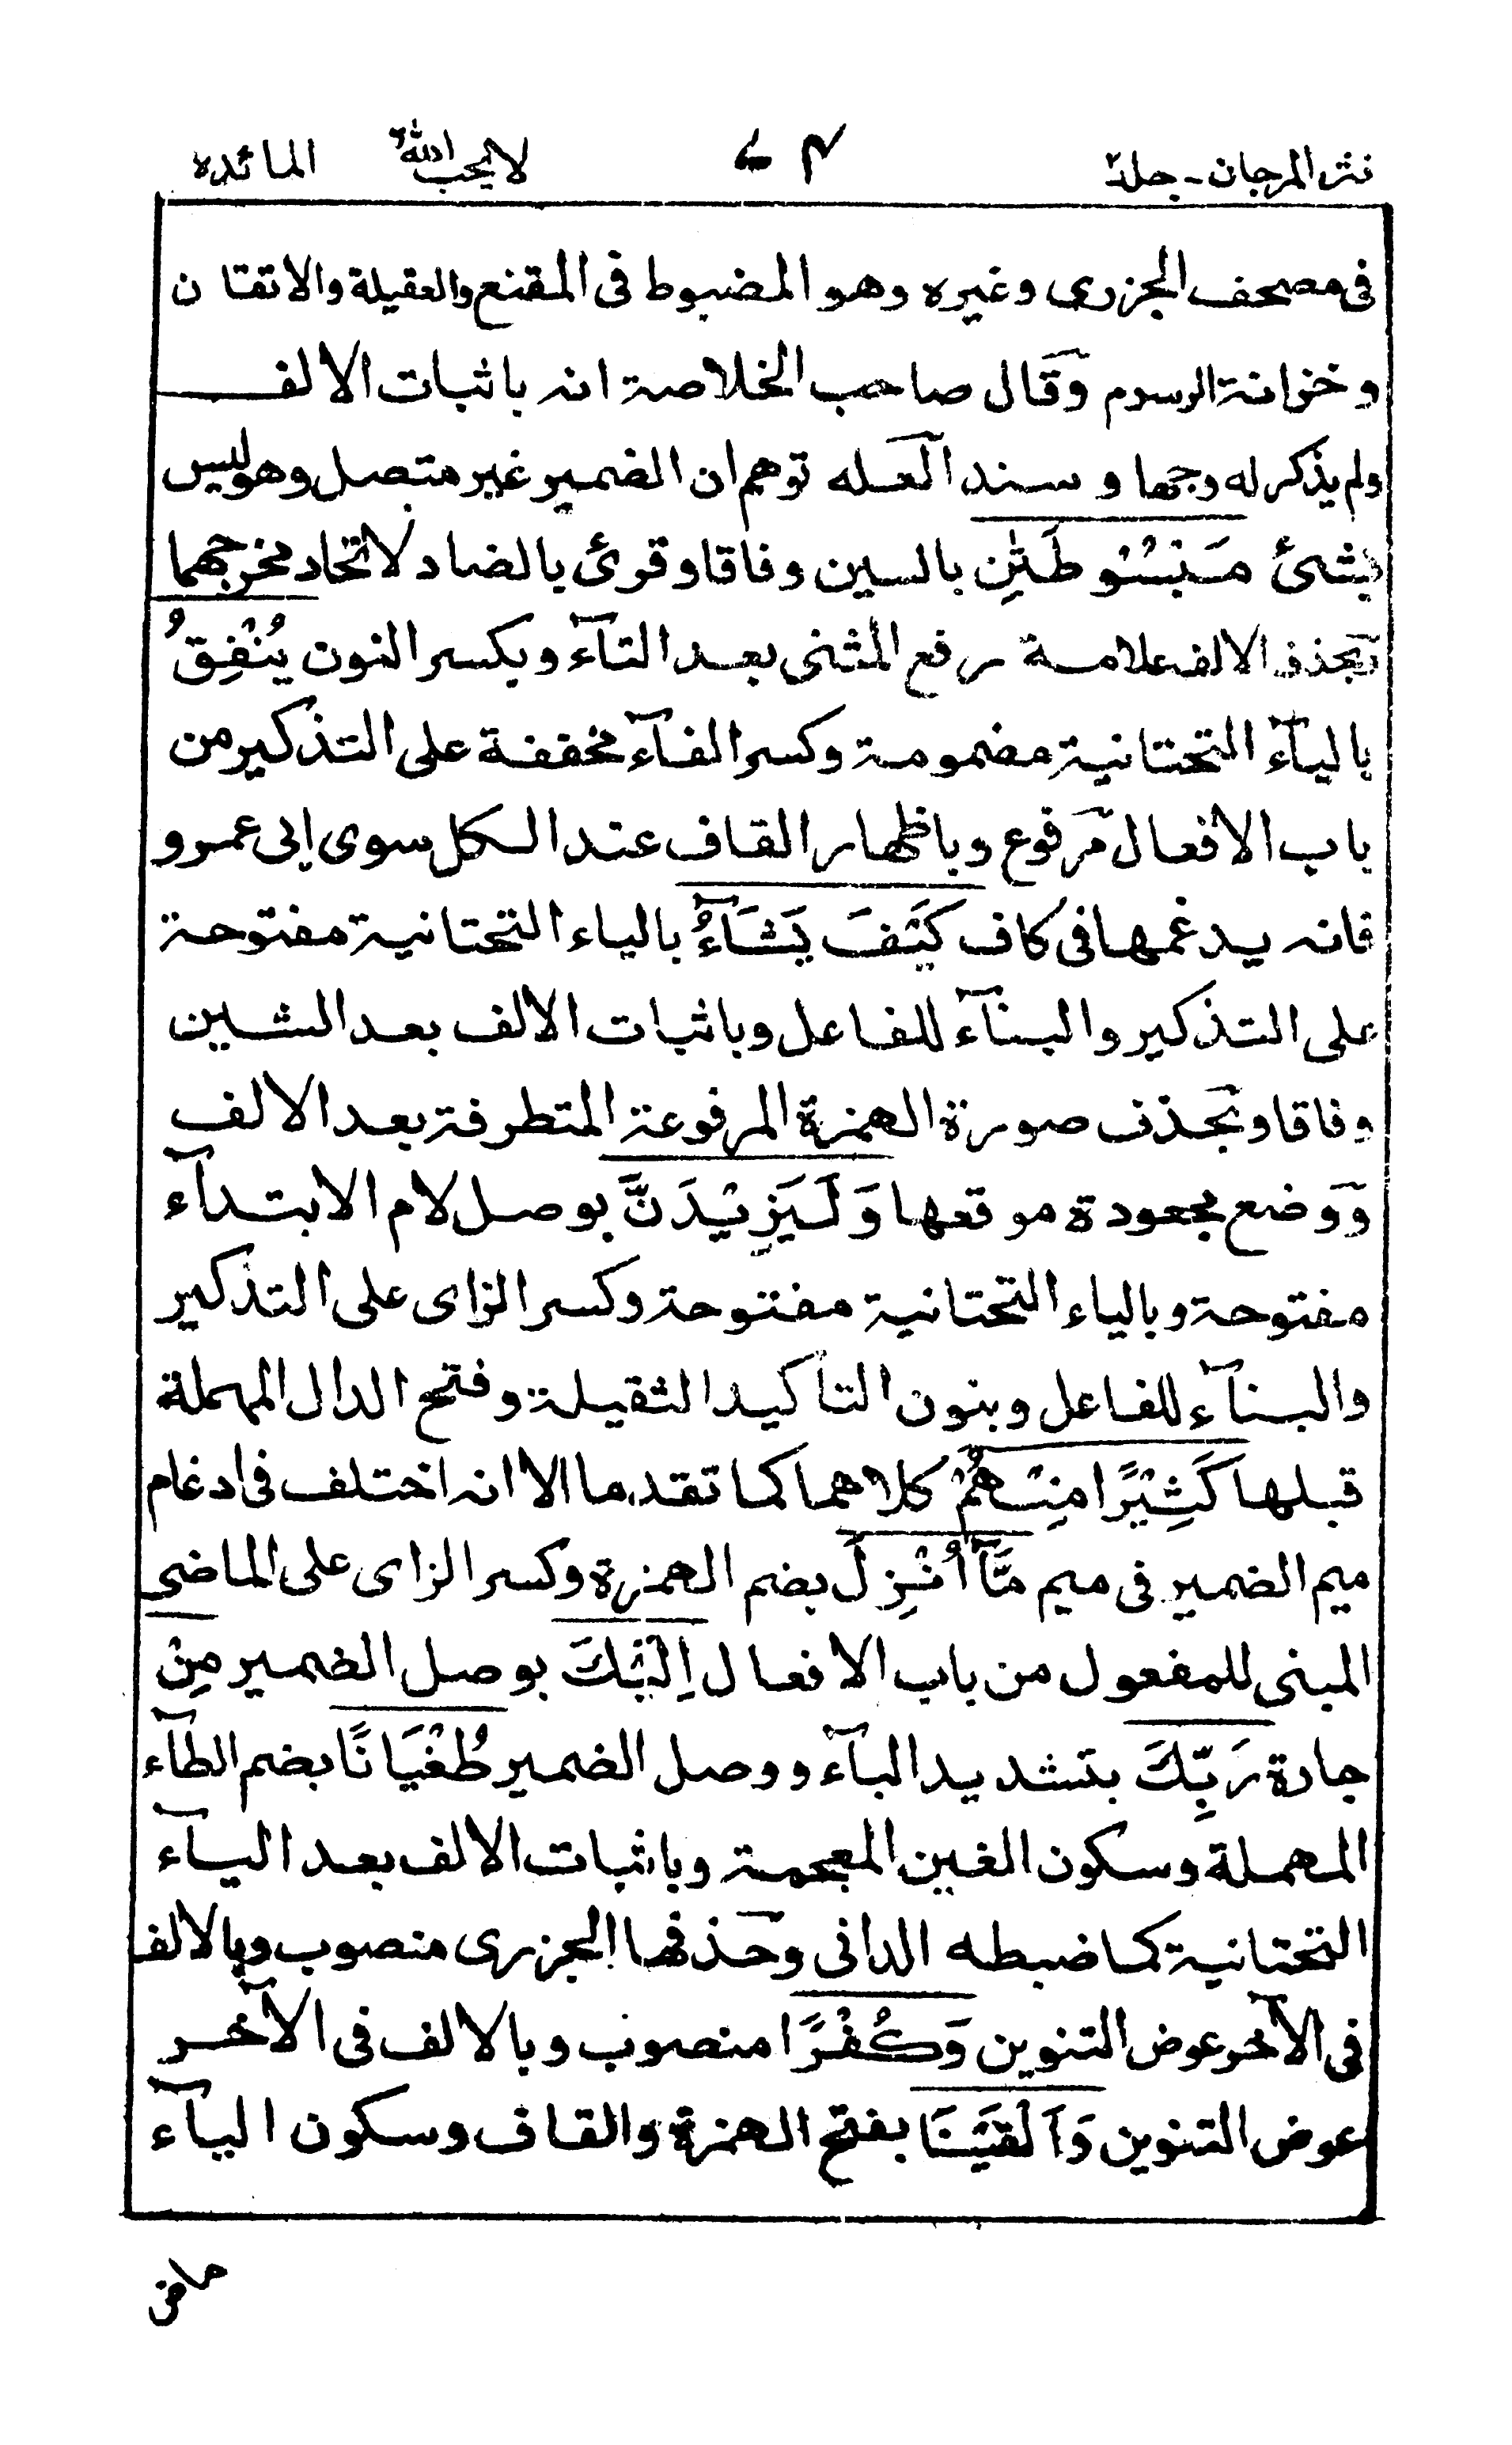 نثر المرجان - جلد ٢ لا يحب الله المائدة
فى مصحف الجزرى وغيره وهو المضبوط فى المقنع والعقيلة والاتقان
وخزانة الرسوم وقال صاحب الخلاصة انه باثبات الالف
ولم يذكر له وجها وسندا لعله توهم ان الضمير غير متصل وهو ليس
بشئ مَبْسُوْطَتٰنِ بالسين وفاقا وقرئ بالصاد لاتحاد مخرجهما
بحذف الالف علامة رفع المثنى بعد التآء وبكسر النون يُنْفِقُ
باليآء التحتانية مضمومة وكسر الفآء مخففة على التذكير من
باب الافعال مرفوع وباظهار القاف عند الكل سوى ابى عمرو
فانه يدغمها فى كاف كَيْفَ يَشَآءُ بالياء التحتانية مفتوحة
على التذكير والبنآء للفاعل وباثبات الالف بعد الشين
وفاقا وبحذف صورة الهمزة المرفوعة المتطرفة بعد الالف
ووضع مجعودة موقعها وَلَيَزِيْدَنَّ بوصل لام الابتدآء
مفتوحة وبالياء التحتانية مفتوحة وكسر الزاى على التذكير
والبنآء للفاعل وبنون التاكيد الثقيلة وفتح الدال المهملة
قبلها كَثِيْرًا مِنْهُمْ كلاهما كما تقدما الا انه اختلف فى ادغام
ميم الضمير فى ميم مَّآ اُنْزِلَ بضم الهمزة وكسر الزاى على الماضى
المبنى للمفعول من باب الافعال اِلَيْكَ بوصل الضمير مِنْ
جارة رَبِّكَ بتشديد البآء ووصل الضمير طُغْيَانًا بضم الطآء
المهملة وسكون الغين المعجمة وباثبات الالف بعد اليآء
التحتانية كما ضبطه الدانى وحذفها الجزرى منصوب وبالالف
فى الآخر عوض التنوين وَكُفْرًا منصوب وبالالف فى الآخر
عوض التنوين وَاَلْقَيْنَا بفتح الهمزة والقاف وسكون اليآء